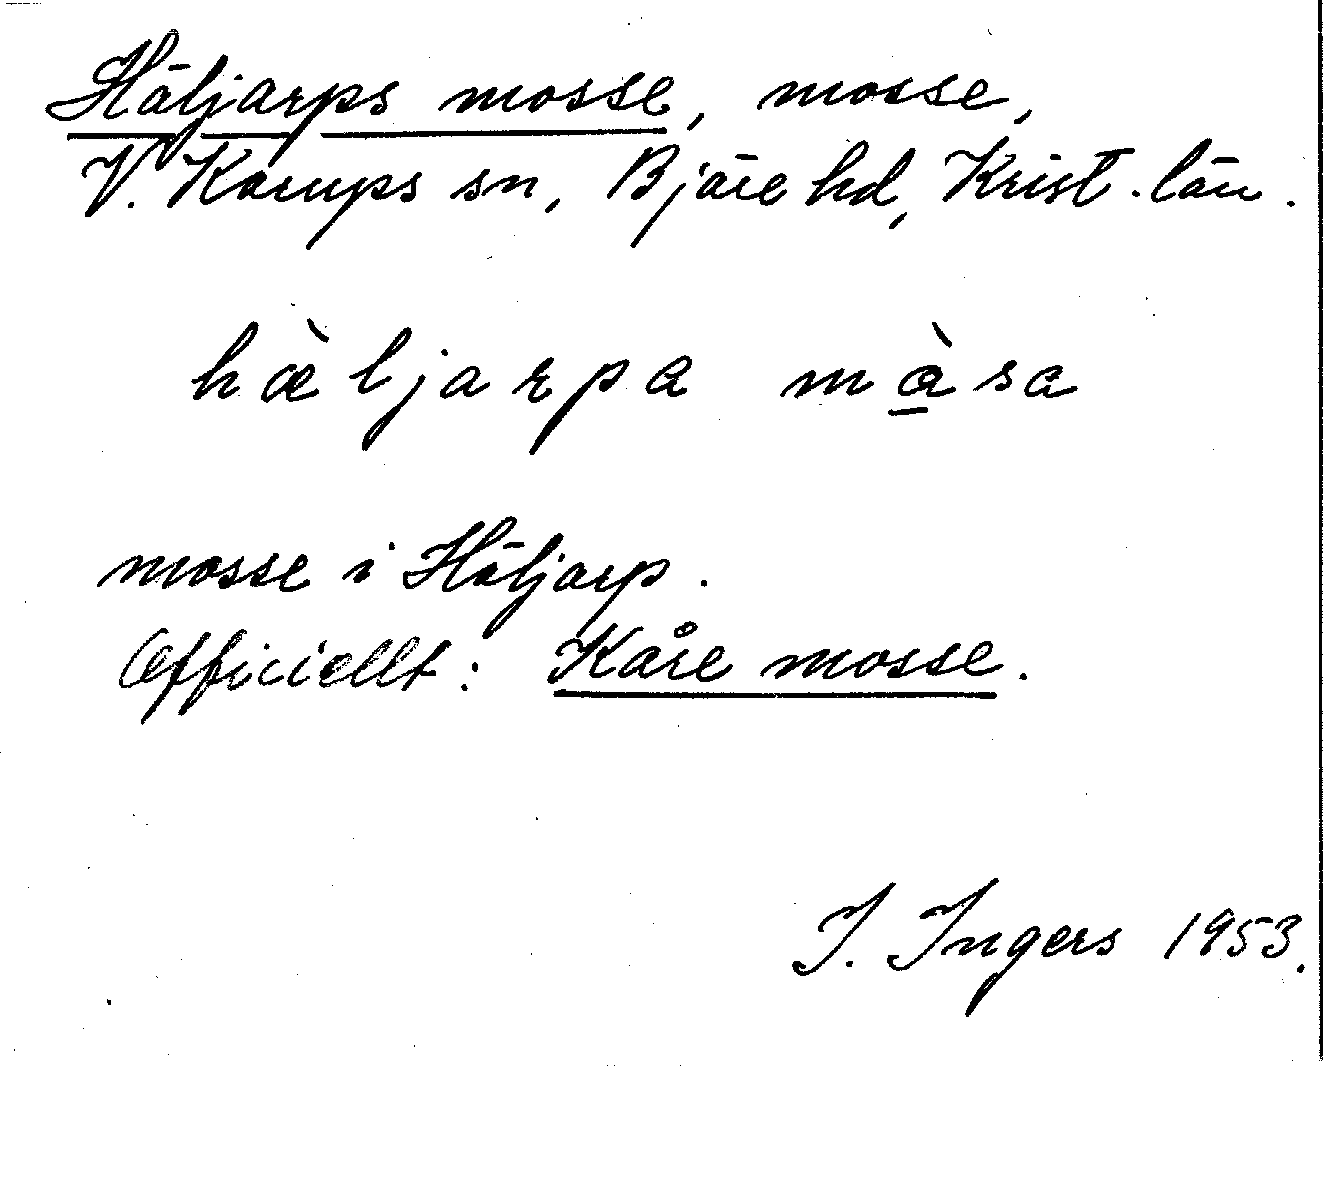 Häljarps mosse, mosse,
V. Karups sn, Bjäre hd, Krist. län.
hæ̀ljarpa mà̱sa
mosse i Häljarp.
Officiellt: Kåre mosse.
I. Ingers 1953.